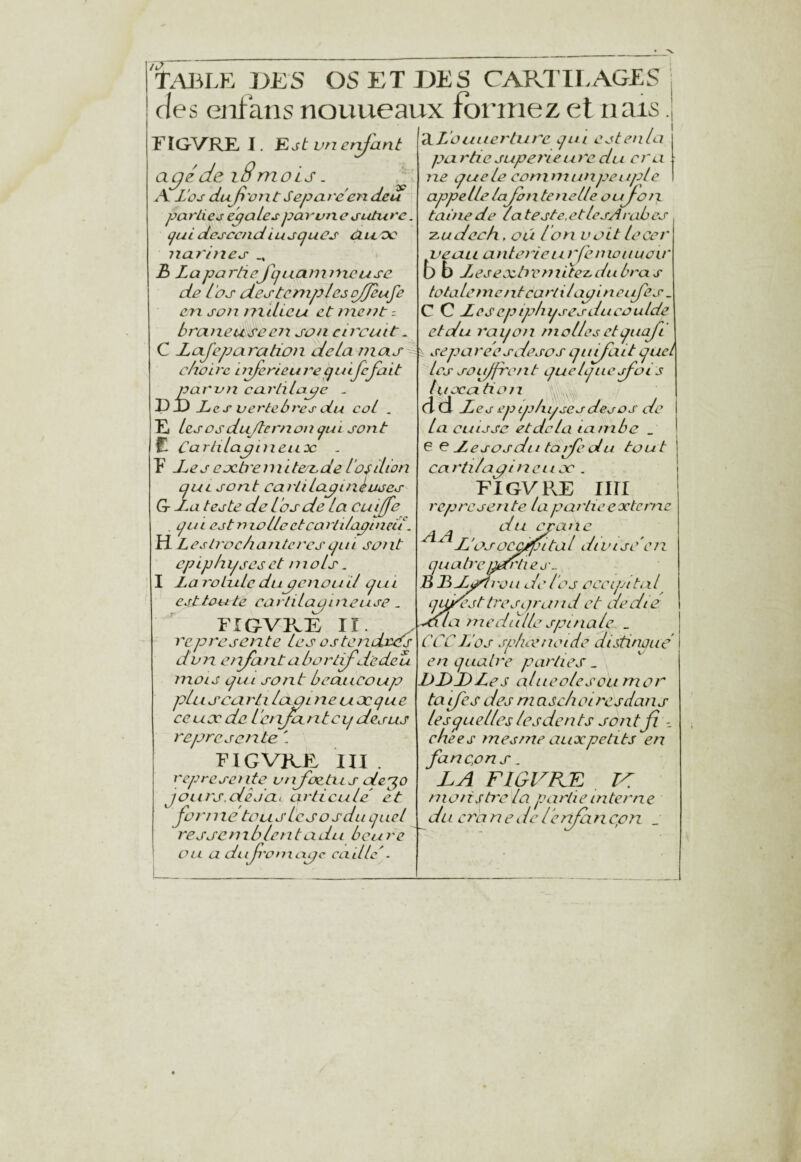 TABLE DES OS ET DES CARTILAGES
des enfans nouueaux formez et nais.
FIGVRE I. Est vn enfant
agé de 18 mois.
A L'os du front Separé en deux
parties egales par vne suture.
qui descend iusques aux
narines
B La partie squammeuse
de l'os des temples osseuse
en son milieu et ment-
braneuse en son circuit.
C La separation de la mas
choire inferieure qui se fait
par vn cartilage
D D Les vertebres du col.
E les os du sternon qui sont
E Cartilagineux
F Les extremitez de l'os ilion
qui sont cartilagineuses
G La teste de l'os de la cuisse
qui est molle et cartilagineu.
H Les trochanteres qui sont
epiphyses et mols.
I La rotule du genouil qui
est toute cartilagineuse.
FIGVRE II.
represente les os tendres
d'vn enfant abortif de deux
mois qui sont beaucoup
plus cartilagineux que
ceux de l'enfant cy desus
represente.
FIGVRE III.
represente vn foetus de 30
jours. désai articulé et
formé tous les os du quel
ressemblent a du beure
ou a du fromage caillé.
a L'ouuerture qui est en la
partie superieure du cra
ne que le commun peuple
appelle la fontenelle ou fon
taine de la teste. et les Arabes
zudech, où l'on voit le cer
veau anterieur se mouuoir
b b Les extremitez du bras
totalement cartilagineuses.
C C Les epiphyses du coulde
et du rayon molles et quasi
separées des os qui fait quel
les souffrent quelquesfois
luxation
d d Les epiphyses des os de
la cuisse et de la iambe
e e Les os du tarse du tout
cartilagineux.
FIGVRE IIII
represente la partie externe
du crane
AA L'os occipital divisé en
quatre parties.
B B Le trou de l'os occipital
qui est tres grand et dedié
a la medulle spinale.
CCC L'os sphœnoide distingué
en quatre parties.
DDDD Les alueoles ou mor
taises des maschoires dans
lesquelles les dents sont fi-
chées mesme aux petits en
fançons.
LA FIGVRE V.
monstre la partie interne
du crane de l'enfançon